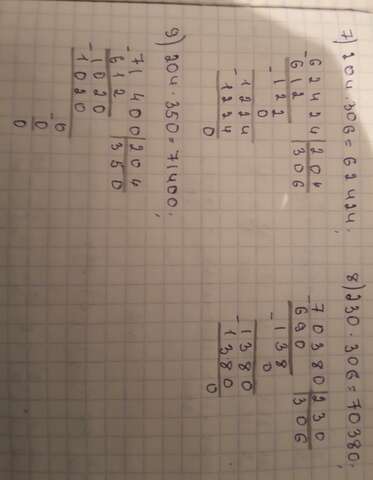 7) 204·306=62424;
-62424|204
612 |306
-122
0
-1224
1224
0
8) 230·306=70380;
-70380|230
690 |306
-138
0
-1380
1380
0
9) 204·350=71400;
-71400|204
612 |350
-1020
1020
-0
0
0